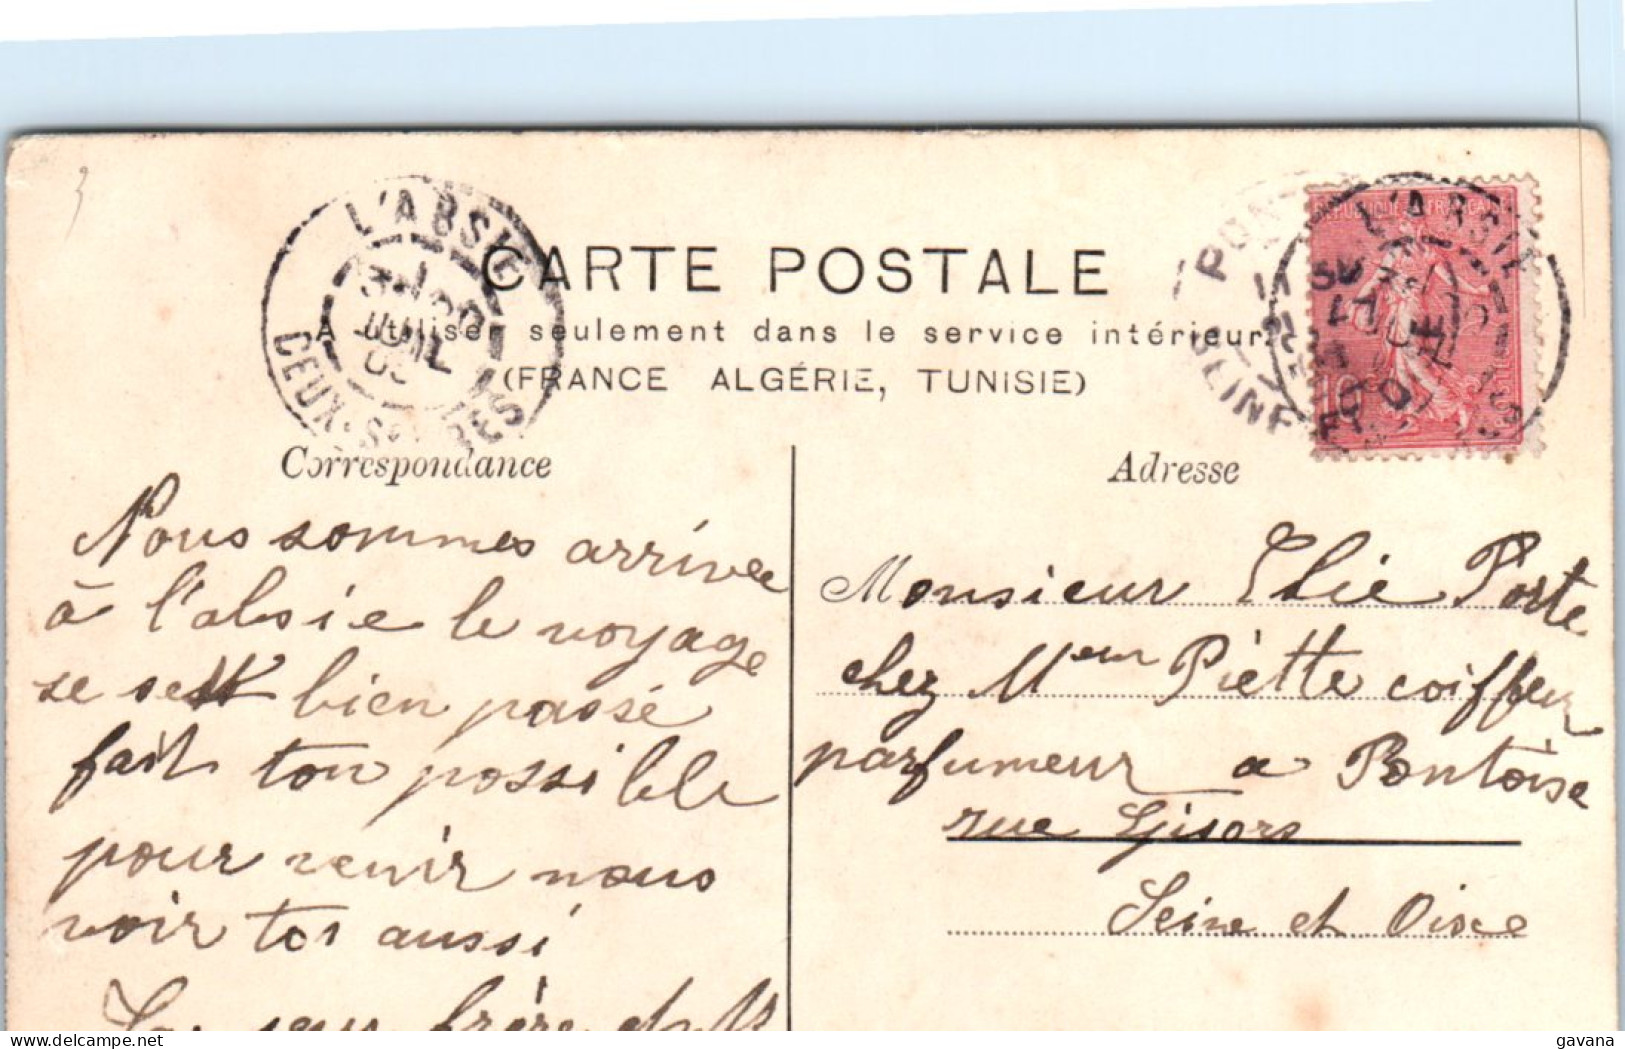 3
L'ABSIE
3E
JUIL
DEUX-SÈVRES
CARTE POSTALE
A utiliser seulement dans le service intérieur.
(FRANCE ALGÉRIE, TUNISIE)
RÉPUBLIQUE FRANÇAISE
10
L'ABSIE
PONT
SEINE ET
Correspondance
Nous sommes arrivée
à l'absie le voyage
se
bien passé
fait ton possible
pour venir nous
voir toi aussi
frère et
Adresse
Monsieur Elie Porte
chez Meur Piètte coiffeur
parfumeur a Pontoise
rue Gisors
Seine et Oise
gavana